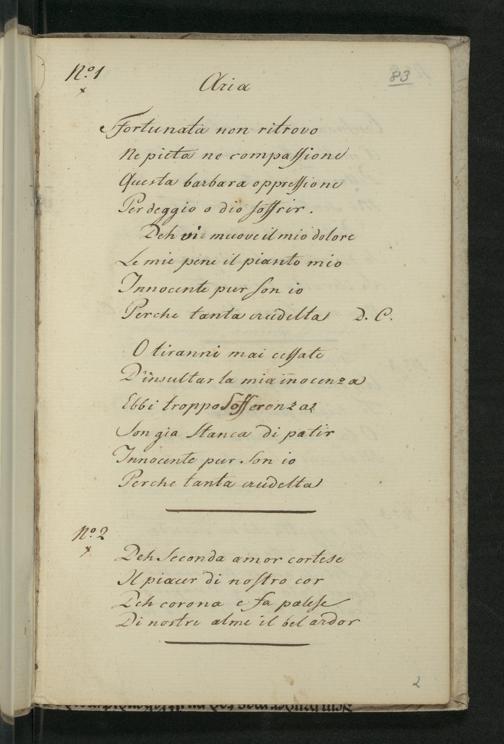 N.o 1
83
Aria
Sfortunata non ritrovo
Ne pieta ne compassione
Questa barbara oppressione
Per deggio o dio soffrir.
Deh vi muove il mio dolore
Le mie pene il pianto mio
Innocente pur son io
Perche tanta crudelta D. C.
O tiranni mai cessate
D'insultar la mia inocenza
Ebbi troppo Sofferenza
Son gia stanca di patir
Innocente pur son io
Perche tanta crudelta
N.o 2
Deh seconda amor cortese
Il piacer di nostro cor
Deh corona e fa palese
Di nostre alme il bel ardor
2